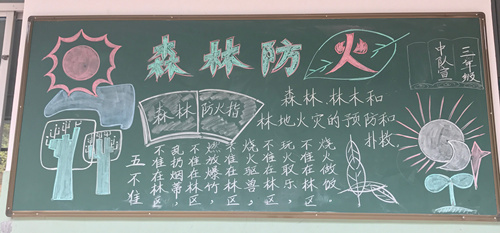 森林防火
三年级
中队宣
森林 防火指
森林、林木和
林地火灾的预防和
扑救.
五不准
不准在林区
乱扔烟蒂!
不准在林区
燃放爆竹,
不准在林区
烧火驱兽,
不准在林区
玩火取乐,
不准在林区
烧火做饭